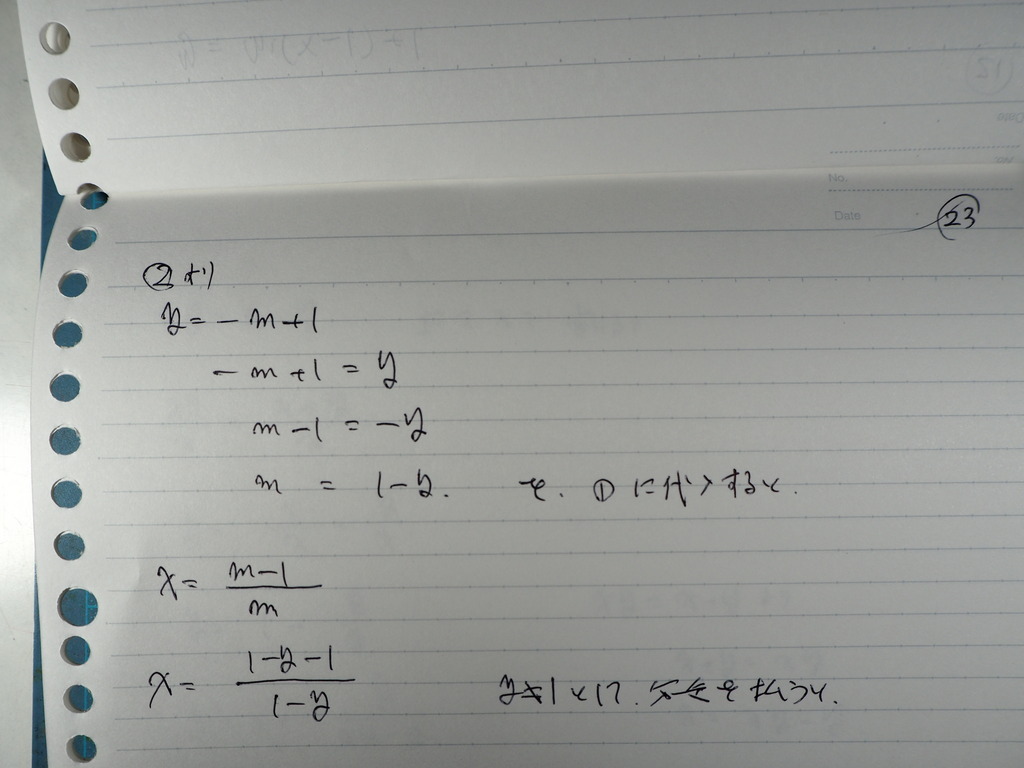 No.
Date
㉓
②より
y = -m+1
-m+1 = y
m-1 = -y
m = 1-y. を、①に代入すると、
x = \frac{m-1}{m}
x = \frac{1-y-1}{1-y} y≠1より、分母を払うと、